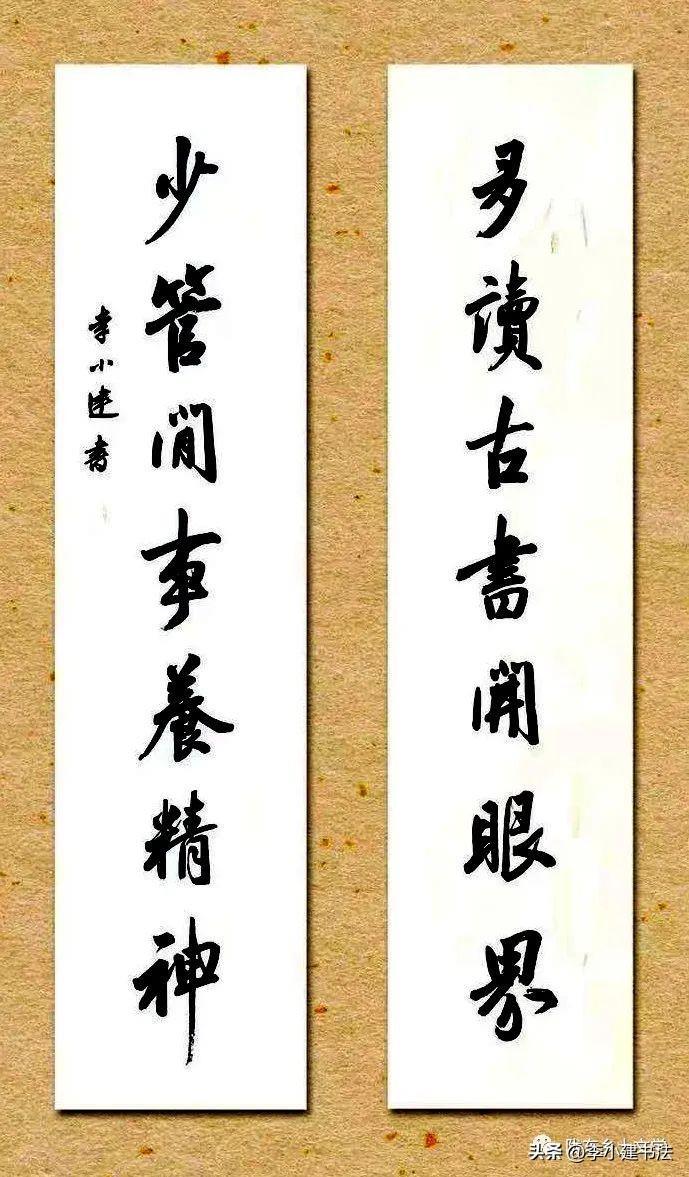 多讀古書開眼界
少管閒事養精神
李小建書
头条 @李小建书法